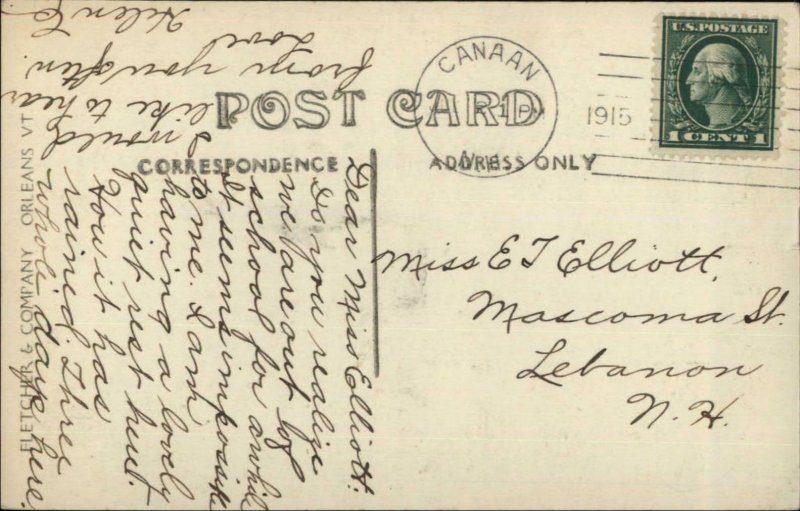 POST CARD
CORRESPONDENCE
ADDRESS ONLY
CANAAN
1 P
N.H.
1915
U.S. POSTAGE
1 CENT 1
Miss E T Elliott,
Mascoma St.
Lebanon
N. H.
Dear Miss Elliott:
Do you realize
we are out of
school for awhile
It seems impossible
to me. I am
having a lovely
quiet rest here.
How it has
rained. Three
whole days here.
I would
like to hear
from you often.
Love
Helen C
FLETCHER & COMPANY ORLEANS VT